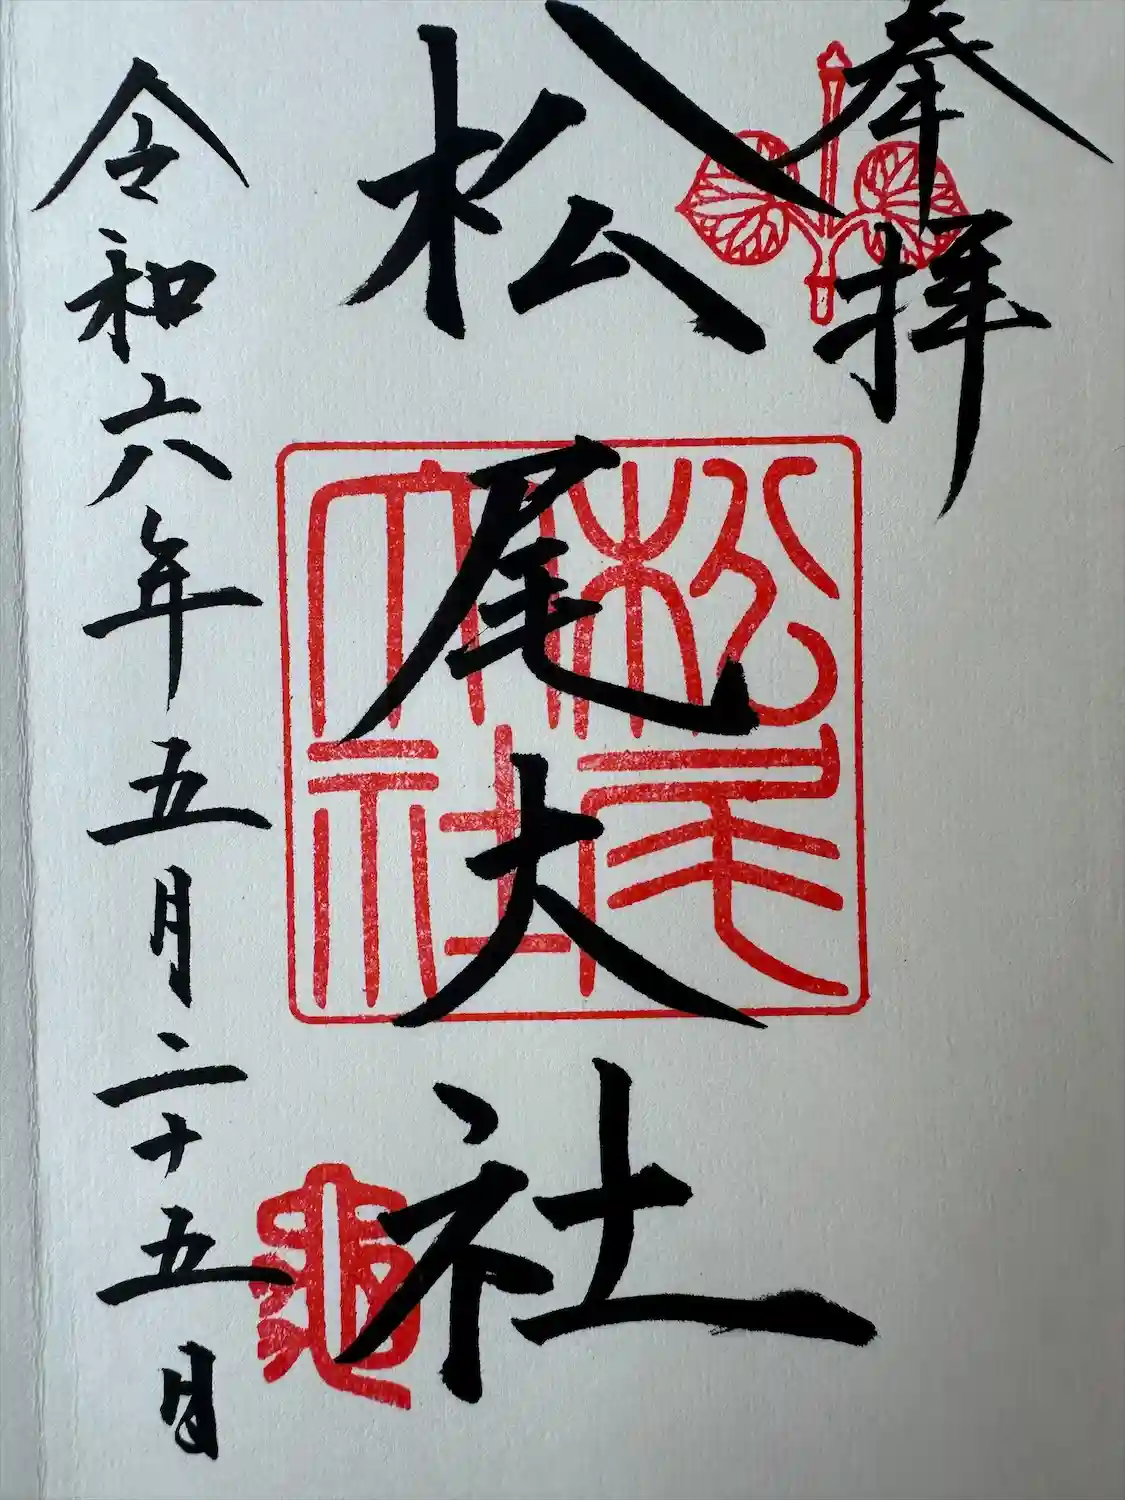 奉拝
松尾大社
松尾大社
亀
令和六年五月二十五日